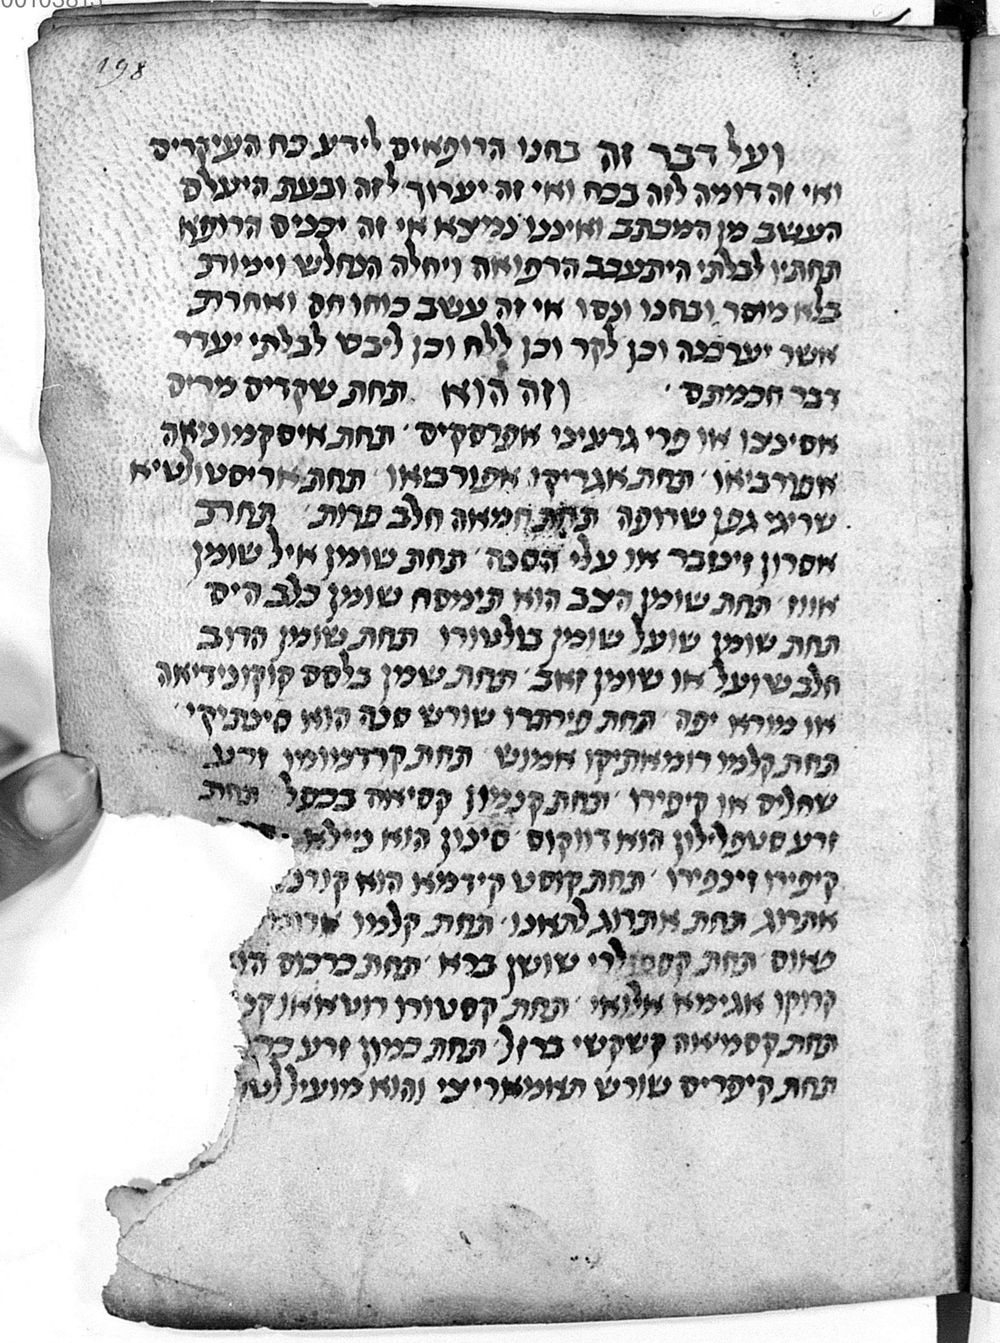 198
ועל דבר זה בחנו הרופאים לידע כח העיקרים
ואי זה דומה לזה בכח ואי זה יערוך לזה ובעת היעלם
העשב מן המכתב ואיננו נמצא אי זה יכניס הרופא
תחתיו לבלתי היתעכב הרפואה ויחלה הנחלש וימות
בלא מוסר ובחנו ונסו אי זה עשב כוחו חם ואחרת
אשר יערכנה וכן לקר וכן ללח וכן ליבש לבלתי יעדר
דבר חכמתם וזה הוא תחת שקדים מרים
אסינצו או פרי גרעיני אפרסקים תחת איסקמוניאה
אפורביאו תחת אגריקו אפורבאו תחת אריסטולטיא
שריגי גפן שרופה תחת חמאה חלב פרות תחת
אסרון זינגבר או עלי הסנה תחת שומן איל שומן
אווז תחת שומן הצב הוא תימסח שומן כלב הים
תחת שומן שועל שומן בולטורו תחת שומן הדוב
חלב שועל או שומן זאב תחת שמן בלסם קוקונידיאה
או מורא יפה תחת פירתרו שורש סנה הוא סינתיקי
תחת קלמו רומאתיקו אמוש תחת קרדמומו זרע
שחלים או קיפירו תחת קנמון קסיאה בכפל תחת
זרע סטפלילון הוא דווקוס סיכון הוא מיילא
קיפירו זינפירו תחת קוסט קידמא הוא
אתרוג תחת אתרוג לתאנו תחת קלמו
טאוס תחת שושן ברא תחת כרכום
קרוקו אגימא אלואי תחת קסטורו רוטא או
תחת קסמיאה קשקשי ברזל תחת כמון זרע
תחת קיפרים שורש תאומאריצי והוא מועיל